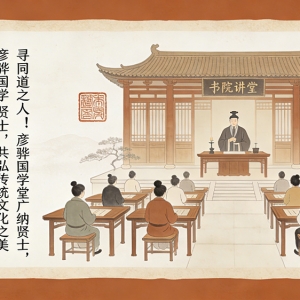 寻同道之人！彦骅国学堂广纳贤士，
彦骅国学 贤士，共弘传统文化之美
书院讲堂